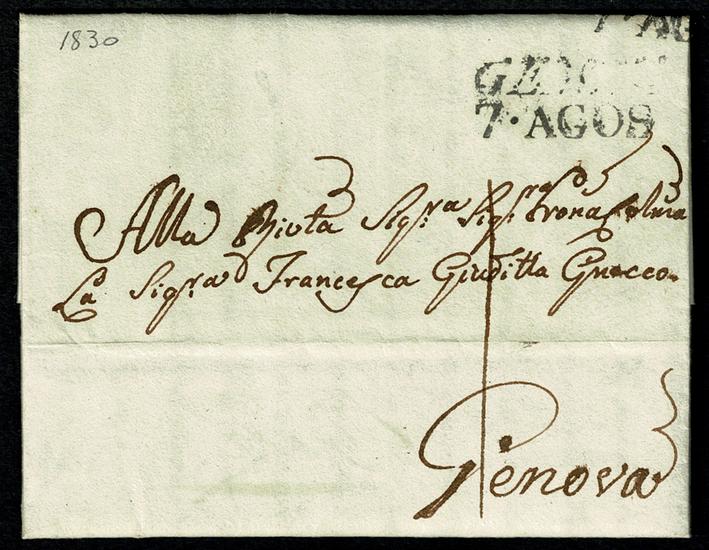 1830
GENOVA
7. AGOS
Alla Rivta Sig.ra Sig.ra Prona Colma
La Sig.ra Francesca Giuditta Gnecco.
Genova